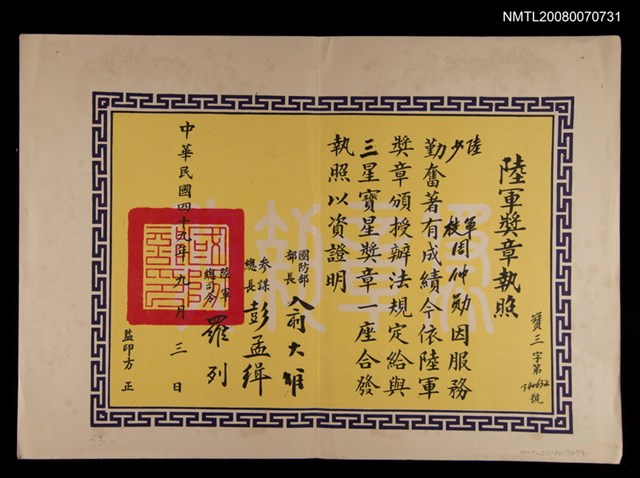 NMTL20080070731
陸軍獎章執照
寶三字第140632號
陸軍少校周仲勛因服務
勤奮著有成績今依陸軍
獎章頒授辦法規定給與
三星寶星獎章一座合發
執照以資證明
國防部部長俞大維
參謀總長彭孟緝
陸軍總司令羅列
中華民國四十九年九月三日
監印方正
NMTL20080070731